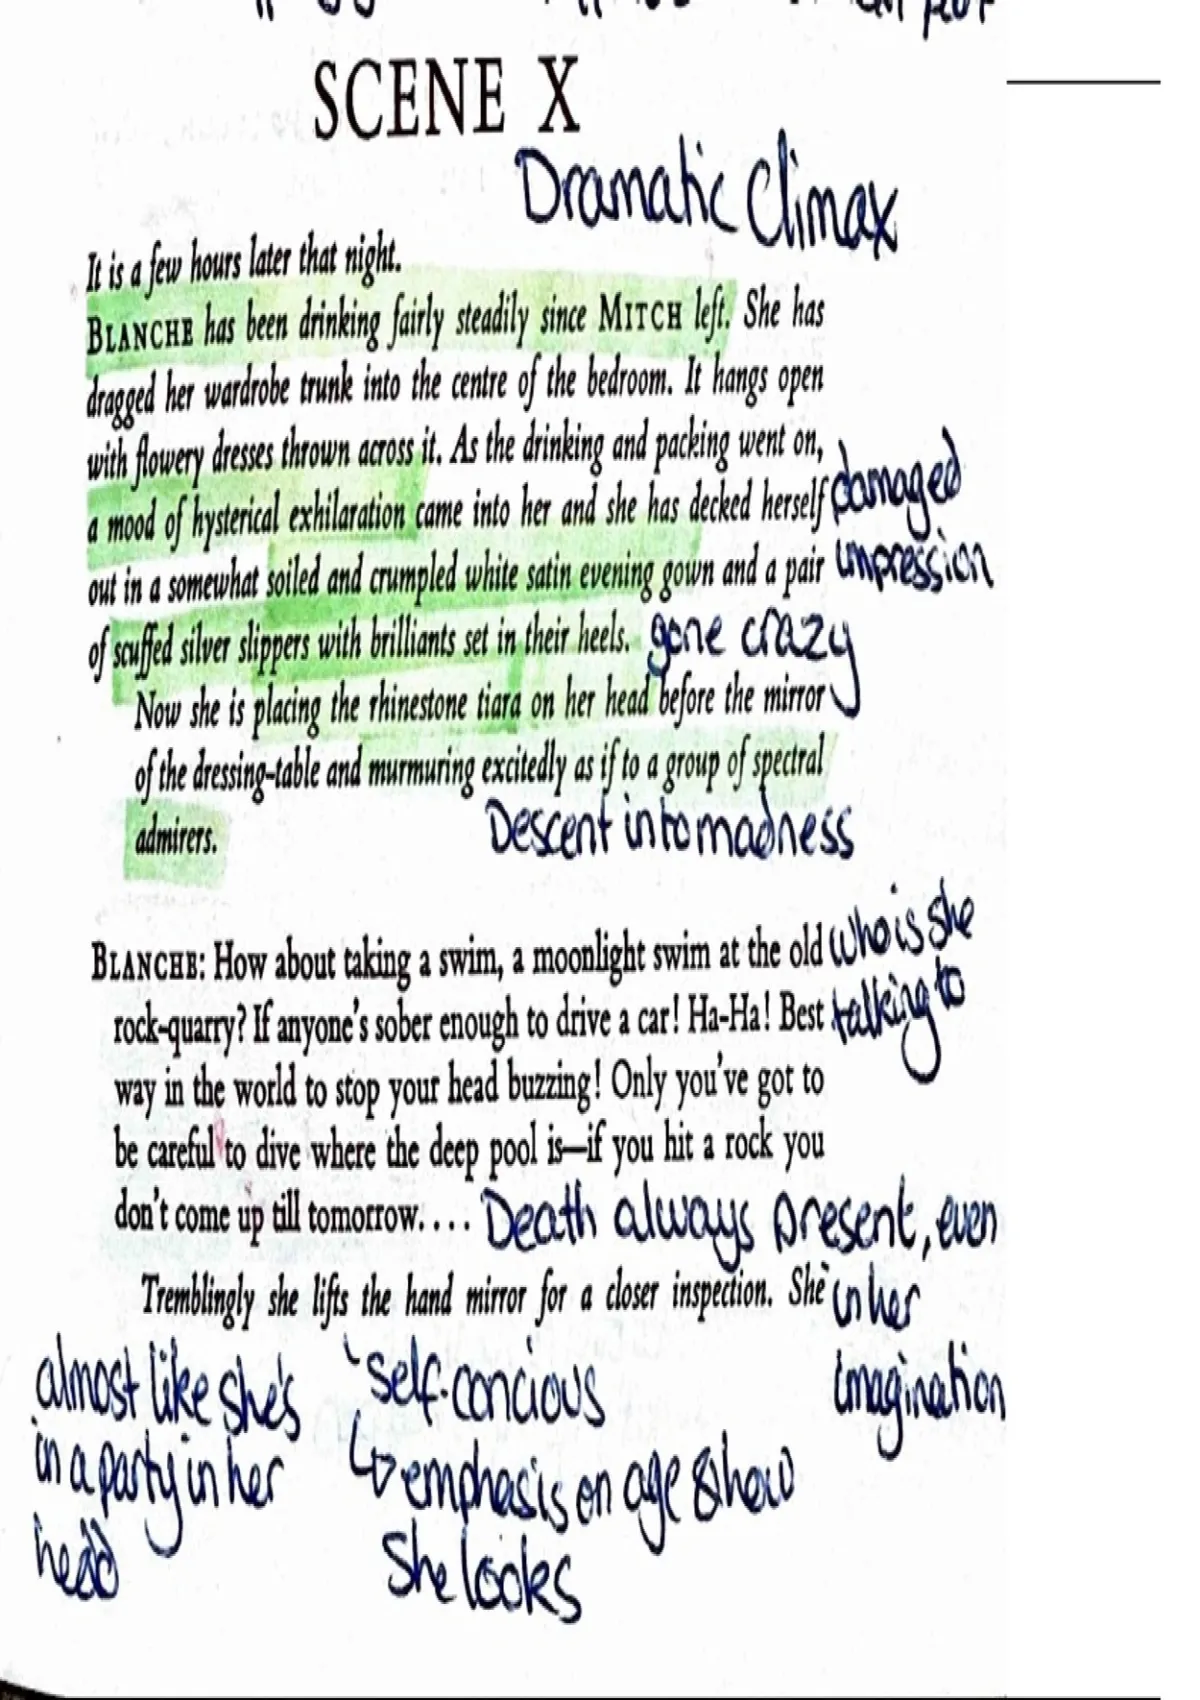 SCENE X
Dramatic Climax
It is a few hours later that night.
BLANCHE has been drinking fairly steadily since MITCH left. She has
dragged her wardrobe trunk into the centre of the bedroom. It hangs open
with flowery dresses thrown across it. As the drinking and packing went on,
a mood of hysterical exhilaration came into her and she has decked herself
out in a somewhat soiled and crumpled white satin evening gown and a pair
of scuffed silver slippers with brilliants set in their heels.
damaged
impression
gone crazy
Now she is placing the rhinestone tiara on her head before the mirror
of the dressing-table and murmuring excitedly as if to a group of spectral
admirers.
Descent into madness
BLANCHE: How about taking a swim, a moonlight swim at the old
rock-quarry? If anyone's sober enough to drive a car! Ha-Ha! Best
way in the world to stop your head buzzing! Only you've got to
be careful to dive where the deep pool is—if you hit a rock you
don't come up till tomorrow. . . .
who is she
talking to
Death always present, even
in her
imagination
Tremblingly she lifts the hand mirror for a closer inspection. She
almost like she's
in a party in her
head
self-concious
↳ emphasis on age & how
she looks